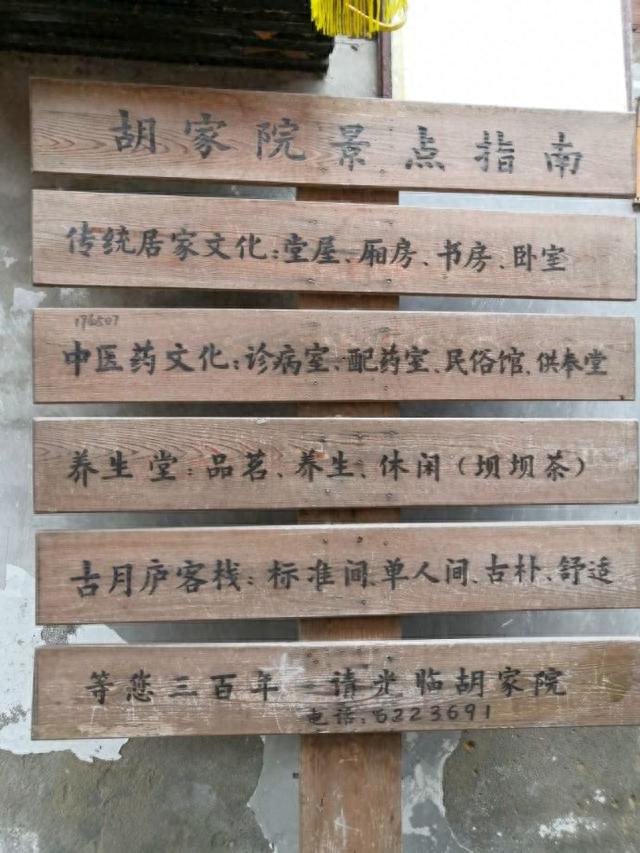 胡家院景点指南
传统居家文化:堂屋、厢房、书房、卧室
176507
中医药文化:诊病室、配药室、民俗馆、供奉堂
养生堂:品茗、养生、休闲(坝坝茶)
古月庐客栈:标准间、单人间、古朴、舒适
等您三百年 请光临胡家院
电话:8223691